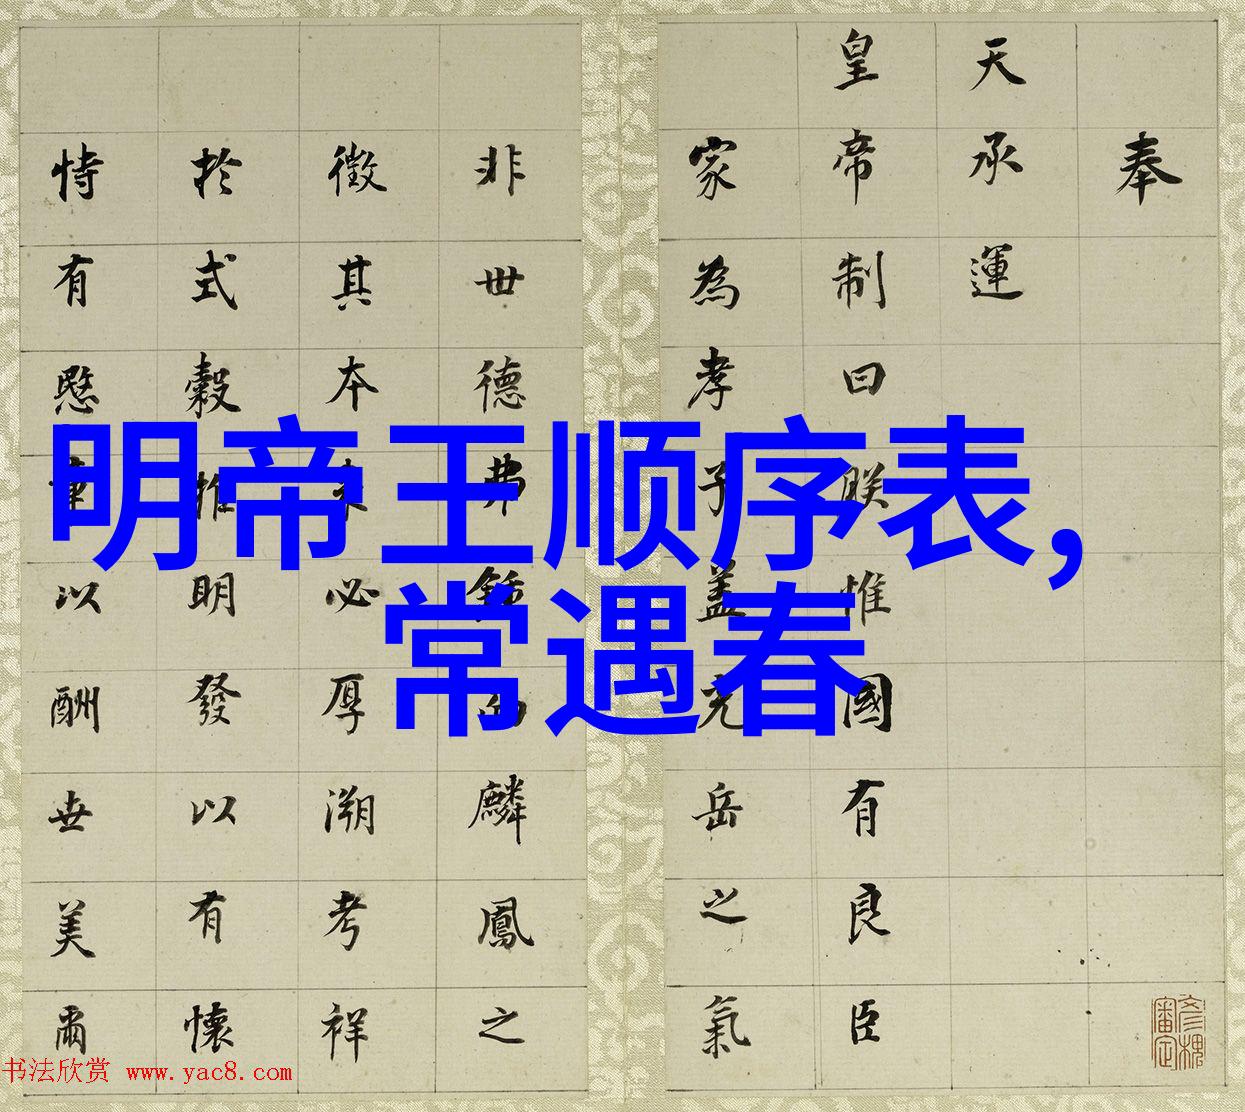 明帝王顺序表,
常遇春
奉
天承運
皇帝制曰朕惟國有良臣
家為孝子蓋充岳之氣
非世德弗麟鳳之
徵其本必厚溯考祥
於式穀推明發以有懷
恃有愍章以酬世美爾
彦槐
審定
书法欣赏 www.yac8.com